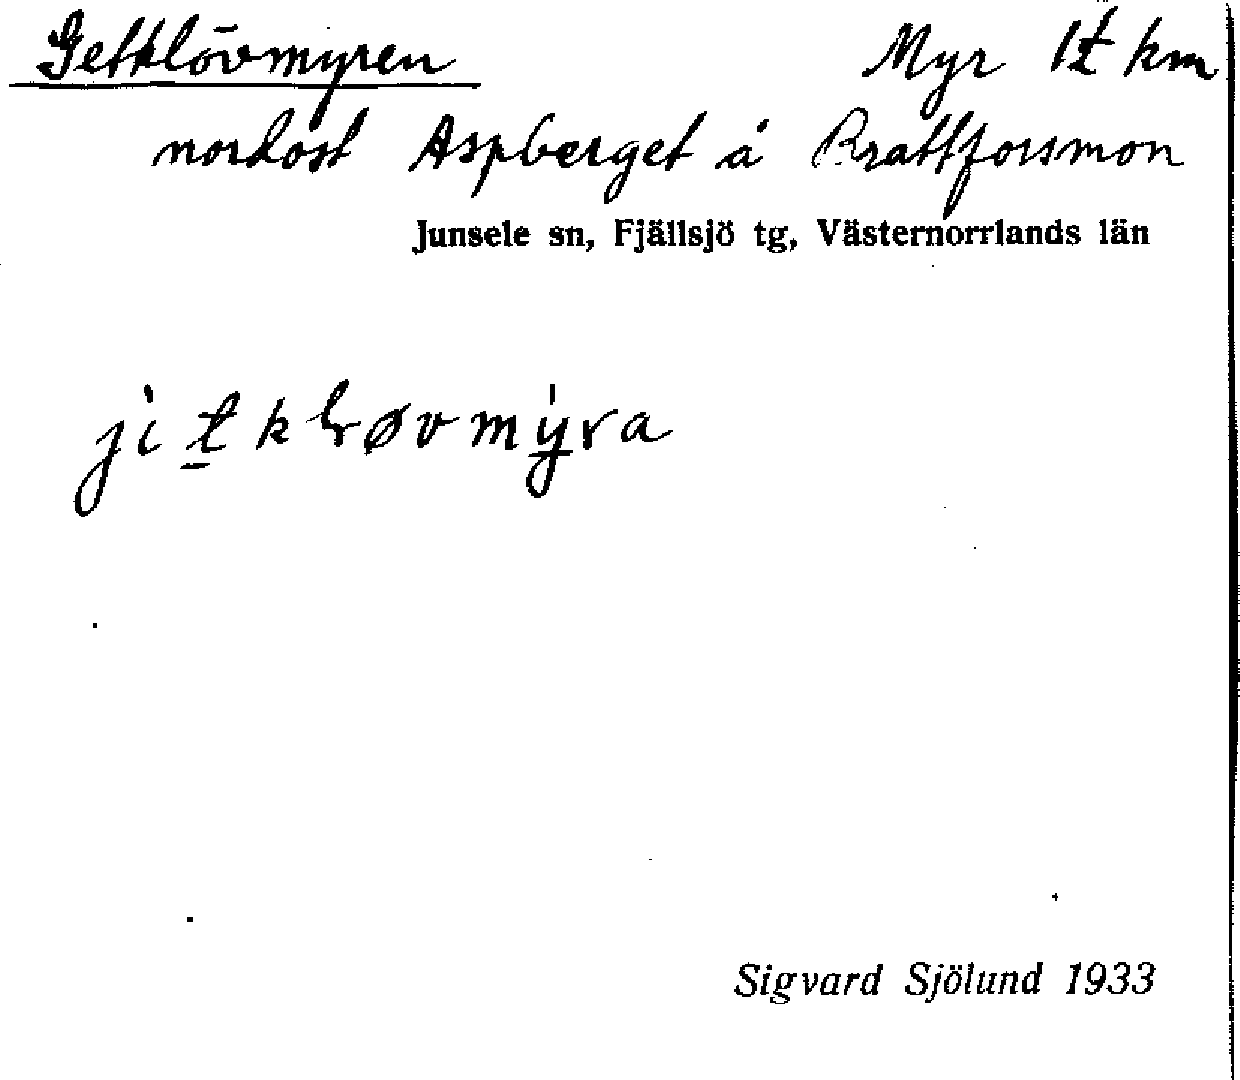 Getklövmyren Myr 1½ km
nordost Aspberget å Krattforsmon
Junsele sn, Fjällsjö tg, Västernorrlands län
jitkløvmyra
Sigvard Sjölund 1933